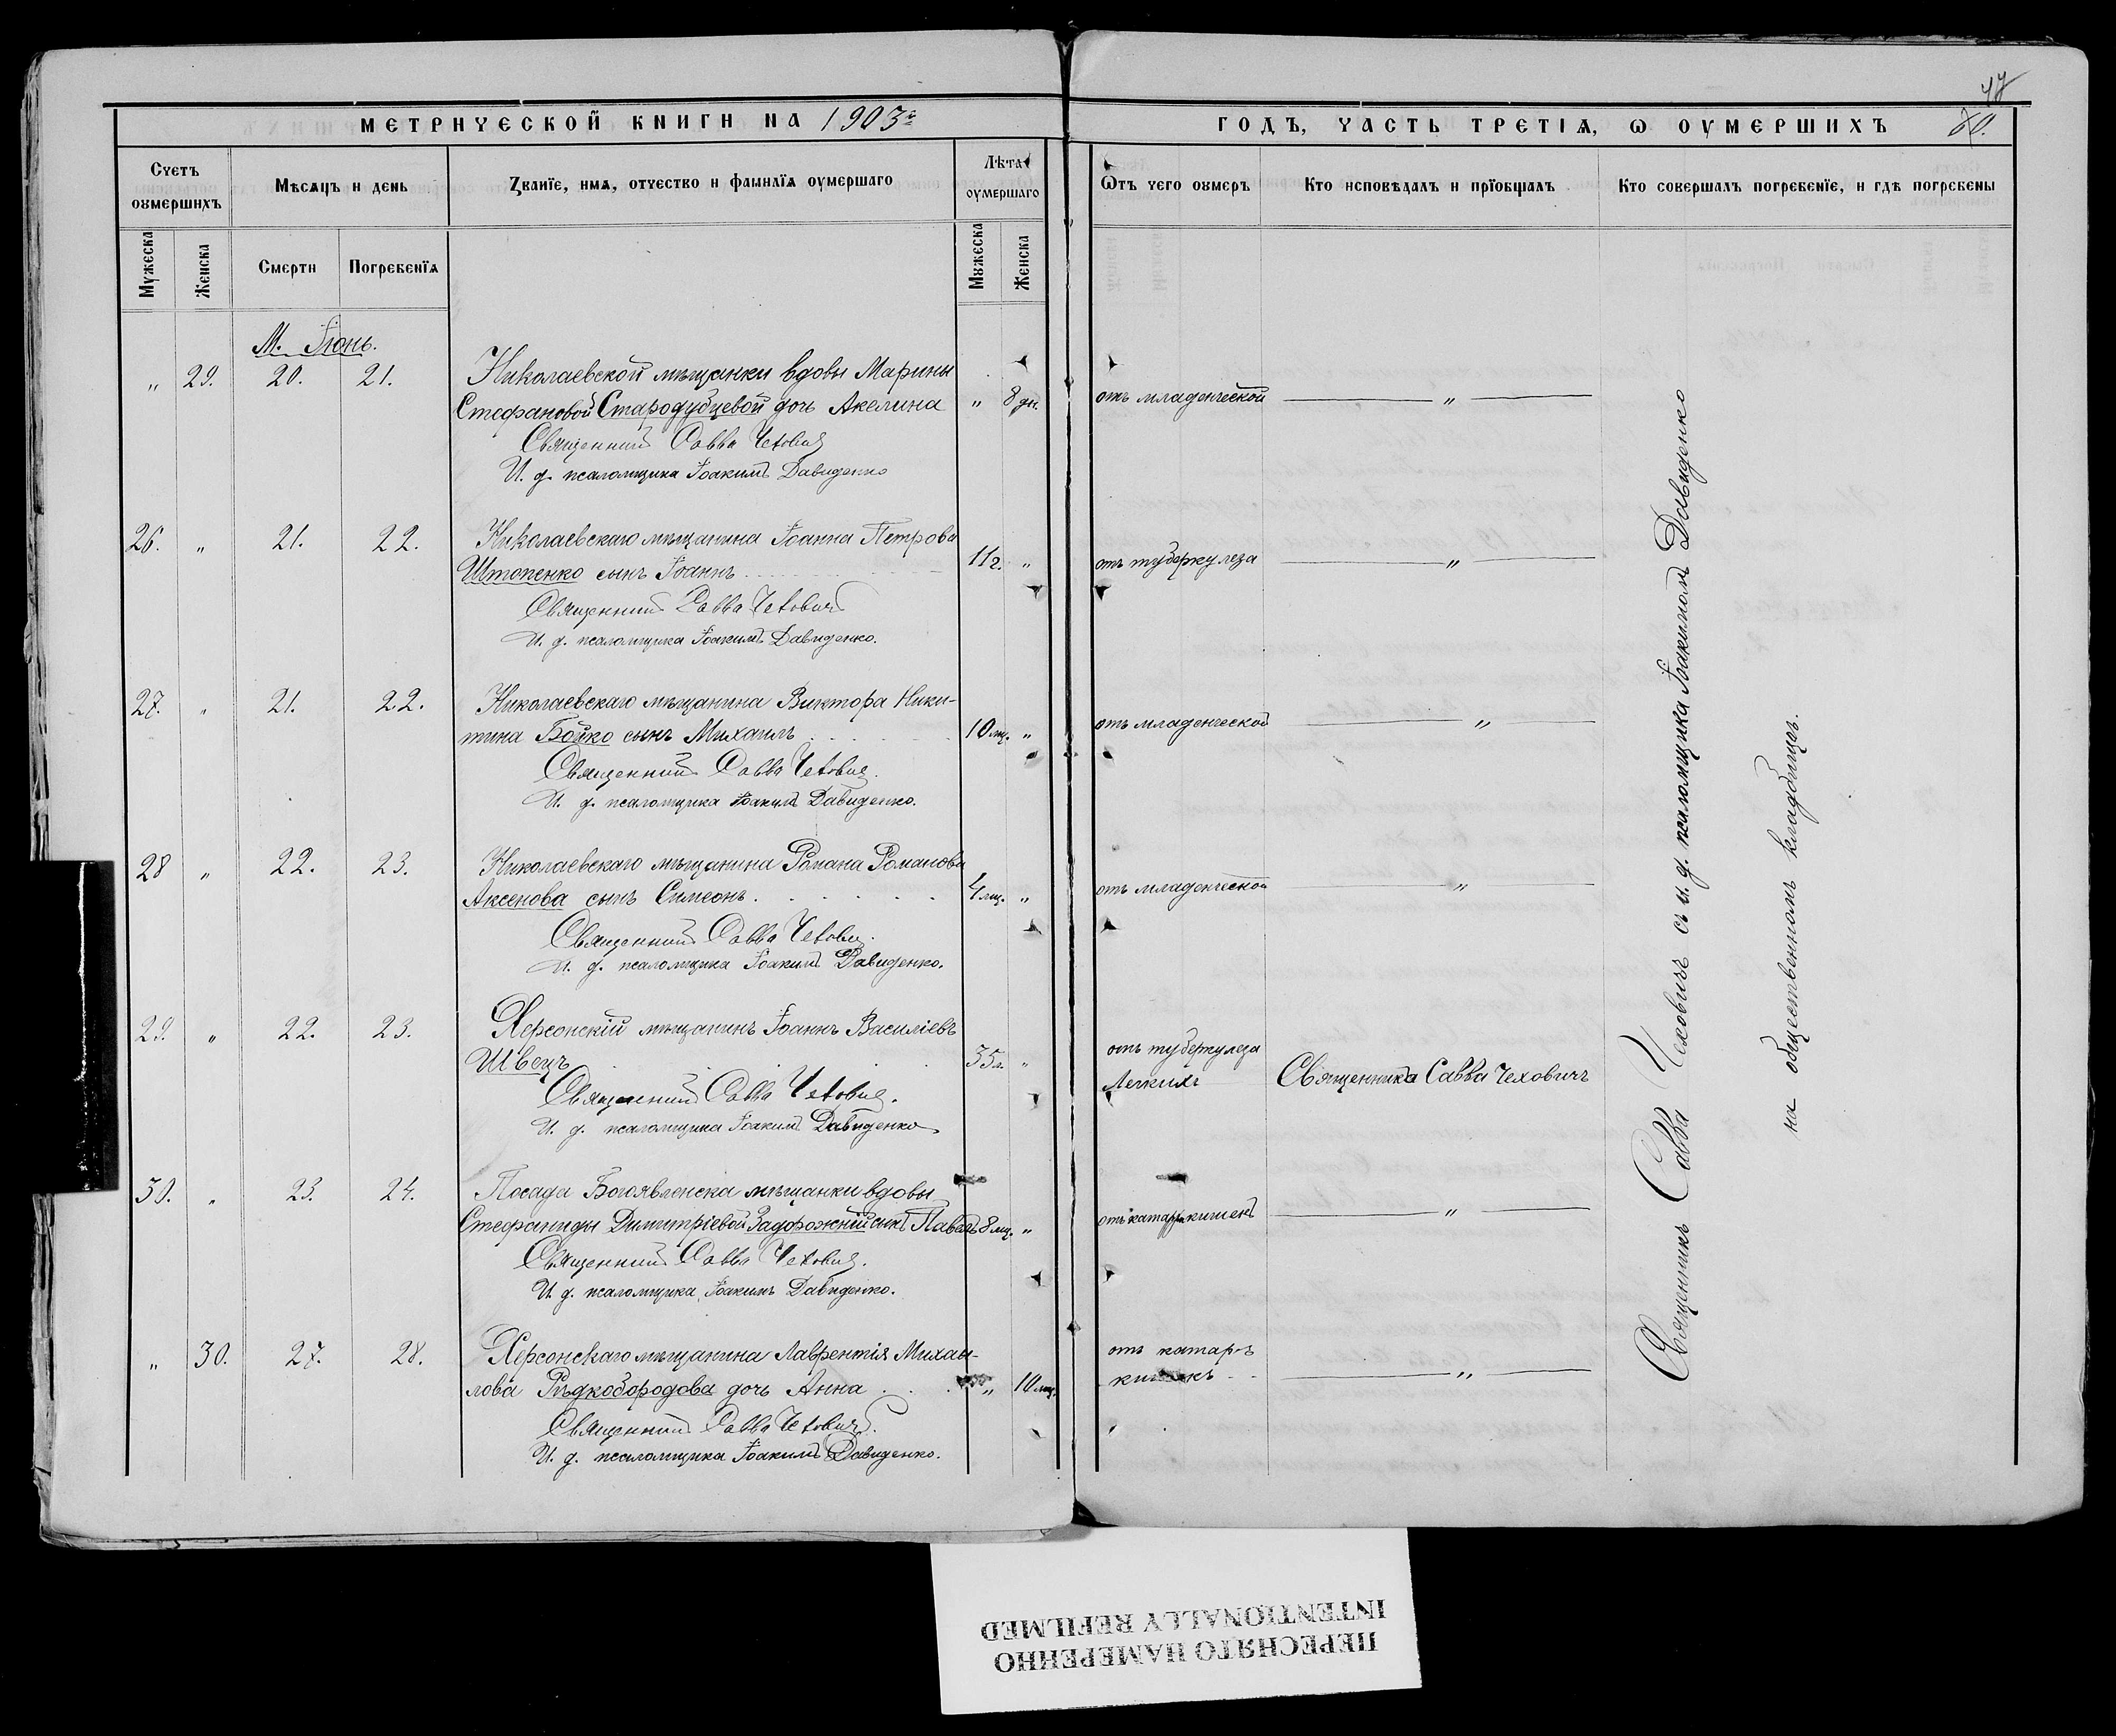 47
МЕТРИЧЕСКОЙ КНИГИ НА 1903 г.
ГОДЪ, ЧАСТЬ ТРЕТІЯ, Ѡ ОУМЕРШИХЪ
60.
Счетъ оумершихъ
Мѣсяцъ и день
Званїе, имя, отчество и фамилїя оумершаго
Лѣта оумершаго
Ѿтъ чего оумеръ
Кто исповѣдалъ и прїобщалъ
Кто совершалъ погребенїе, и гдѣ погребены
Мужеска
Женска
Смерти
Погребенїя
Мужеска
Женска
М. Іюнь.
„ 29. 20. 21. Николаевской мѣщанки вдовы Марины
Стефановой Стародубцевой дочь Акелина „ 8 дн. отъ младенческой „
Священникъ Савва Чехович
И. д. псаломщика Іоакимъ Давиденко
26. „ 21. 22. Николаевскаго мѣщанина Іоанна Петрова
Штопенко сынъ Іоаннъ 11 г. „ отъ туберкулеза „
Священникъ Савва Чехович
И. д. псаломщика Іоакимъ Давиденко.
27. „ 21. 22. Николаевскаго мѣщанина Виктора Ники-
тина Бойко сынъ Михаилъ 10 мц. „ отъ младенческой „
Священникъ Савва Чехович.
И. д. псаломщика Іоакимъ Давиденко.
28 „ 22. 23. Николаевскаго мѣщанина Романа Романова
Аксенова сынъ Симеонъ 4 мц. „ отъ младенческой „
Священникъ Савва Чехович.
И. д. псаломщика Іоакимъ Давиденко.
29. „ 22. 23. Херсонскій мѣщанинъ Іоаннъ Василіевъ
Швецъ 35 л. „ отъ туберкулеза
Легкихъ Священника Савва Чеховичъ
Священникъ Савва Чехович.
И. д. псаломщика Іоакимъ Давиденко
30. „ 23. 24. Посада Богоявленска мѣщанки вдовы
Стефаниды Димитріевой Задорожній сынъ Павелъ 8 мц. „ отъ катарра кишекъ „
Священникъ Савва Чехович.
И. д. псаломщика Іоакимъ Давиденко.
„ 30. 27. 28. Херсонскаго мѣщанина Лаврентія Михаи-
лова Рѣдкобородова дочь Анна „ 10 мц. отъ катаръ
кишекъ „
Священникъ Савва Чехович.
И. д. псаломщика Іоакимъ Давиденко.
Священникъ Савва Чеховичъ съ и. д. псаломщика Іоакимомъ Давиденко
на общественномъ кладбищѣ.
ПЕРЕСНЯТО НАМЕРЕННО
INTENTIONALLY REFILMED